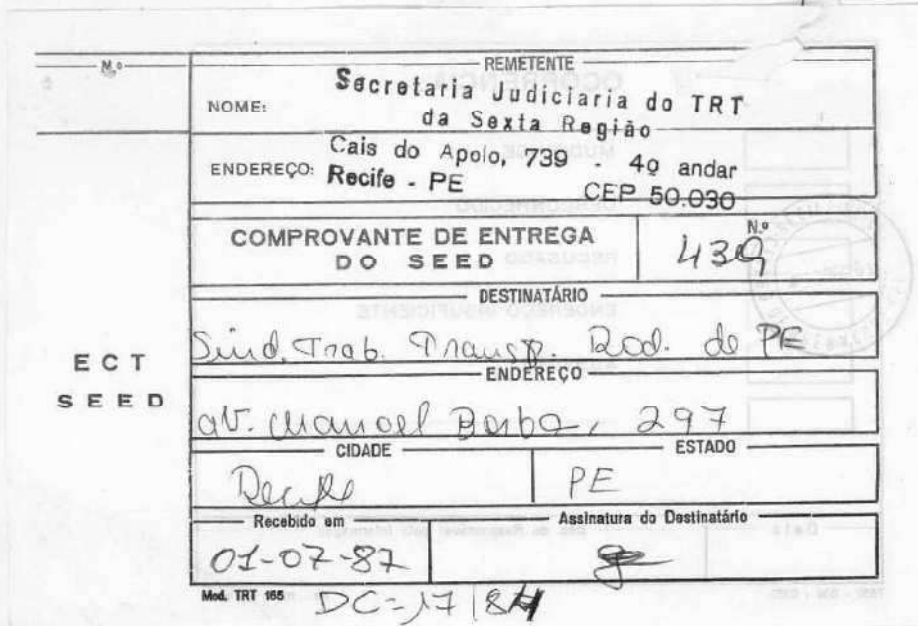 N.º
REMETENTE
NOME: Secretaria Judiciaria do TRT
da Sexta Região
ENDEREÇO: Cais do Apolo, 739 - 4º andar
Recife - PE CEP 50.030
COMPROVANTE DE ENTREGA
DO SEED
N.º
439
DESTINATÁRIO
Sind. Trab. Transp. Rod. de PE
ECT
SEED
ENDEREÇO
av. Manoel Borba, 297
CIDADE
Recife
ESTADO
PE
Recebido em
01-07-87
Assinatura do Destinatário
Mod. TRT 165
DC=17/84